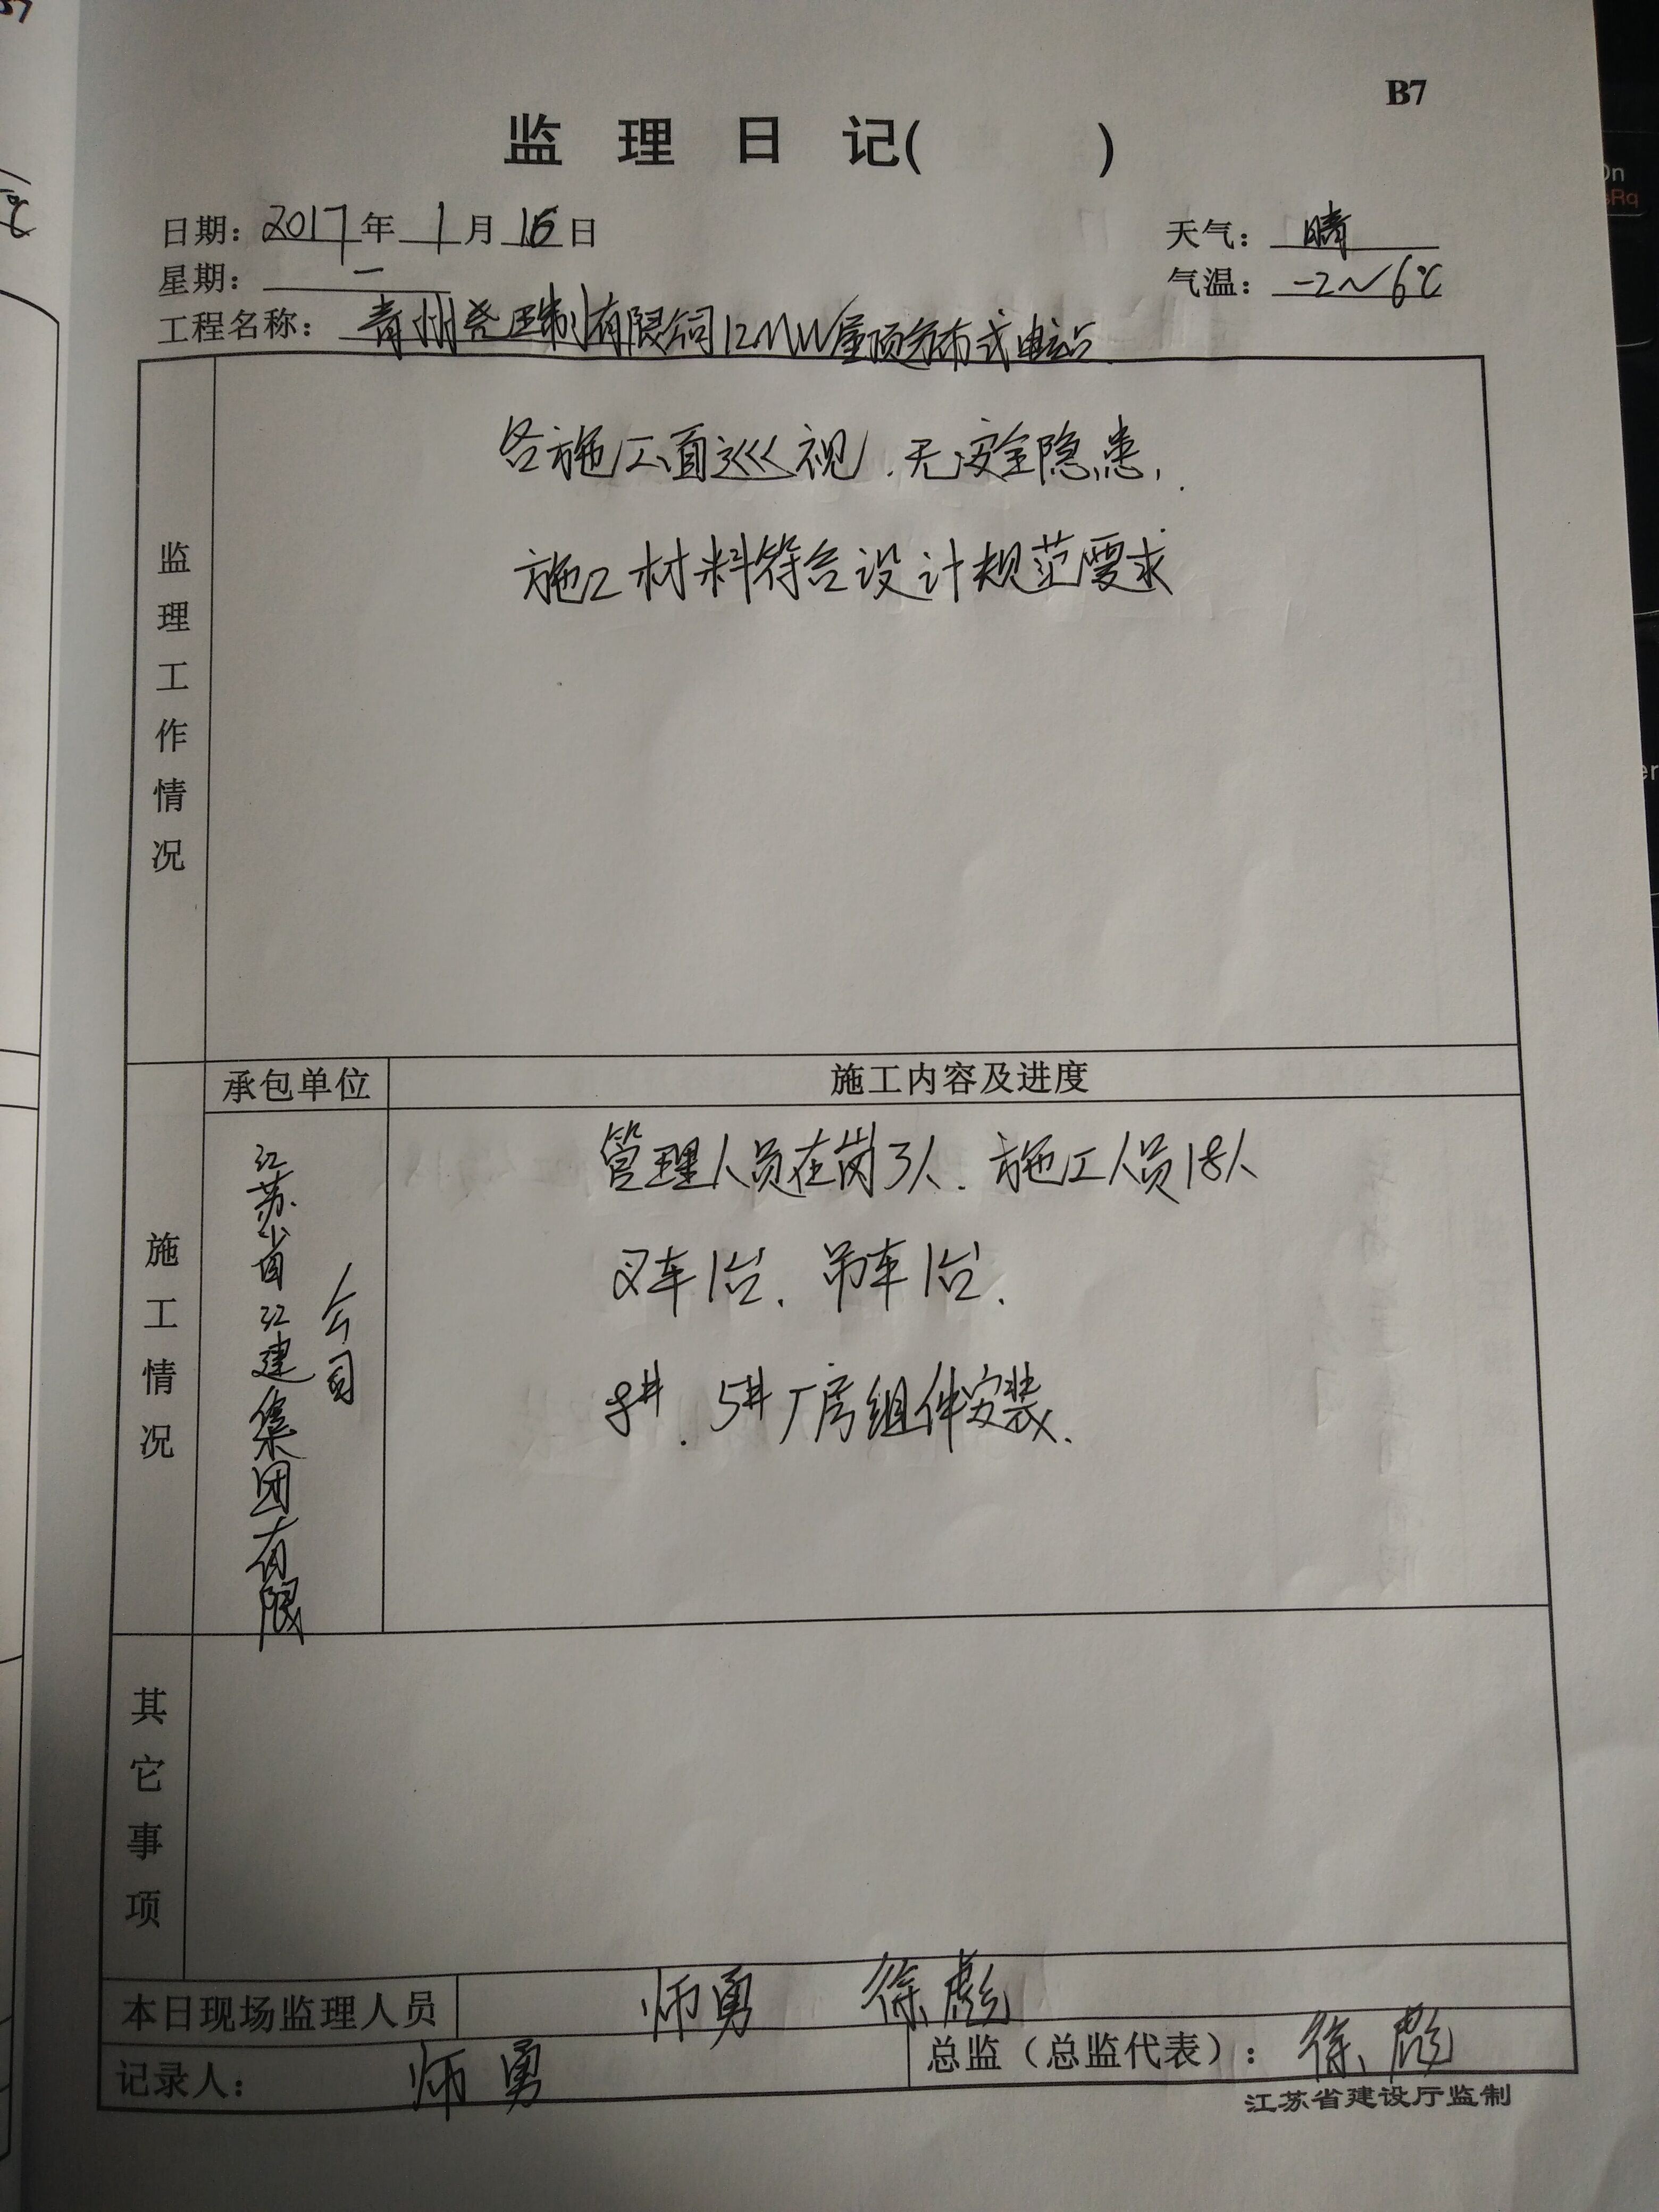 B7
监 理 日 记( )
日期: 2017 年 1 月 16 日
天气: 晴
星期: 一
气温: -2~6℃
工程名称: 青州尧王制有限公司12MW屋顶分布式电站
监理工作情况
各施工面巡视.无安全隐患,.
施工材料符合设计规范要求
承包单位
施工内容及进度
施工情况
江苏省江建集团有限
公司
管理人员在岗3人. 施工人员18人
叉车1台. 吊车1台.
8#. 5#厂房组件安装.
其它事项
本日现场监理人员
师勇 徐彪
记录人: 师勇
总监(总监代表): 徐彪
江苏省建设厅监制